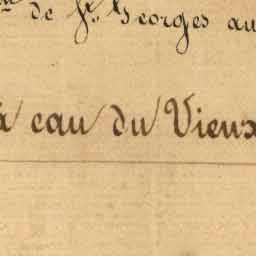 de St. Georges au
à eau du Vieux